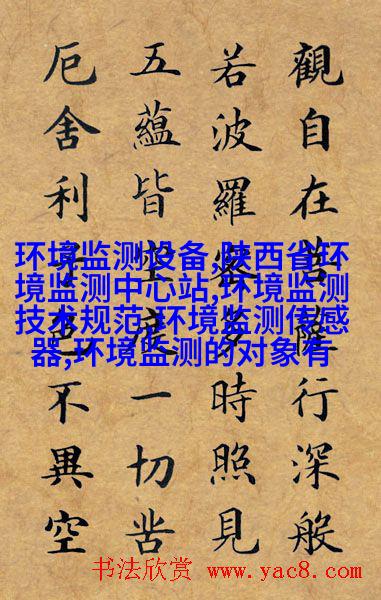 觀自在菩薩行深般
若波羅蜜多時照見
五蘊皆空度一切苦
厄舍利子色不異空
环境监测设备,陕西省环
境监测中心站,环境监测
技术规范,环境监测传感
器,环境监测的对象有
书法欣赏 www.yac8.com